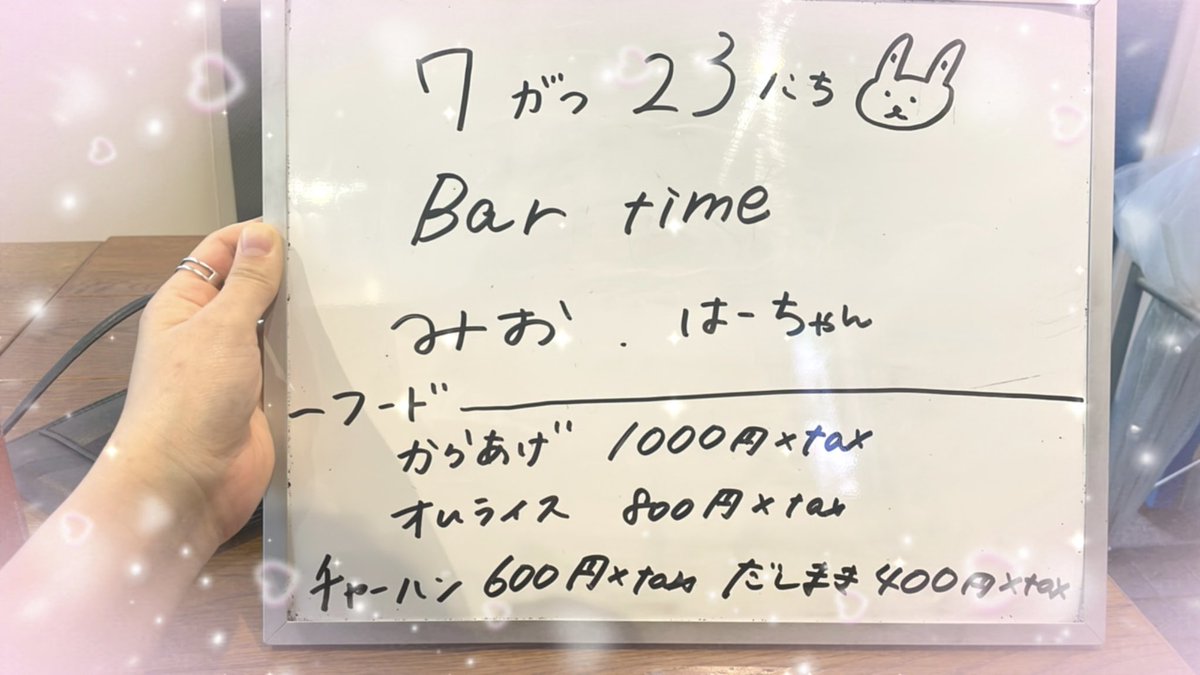 7がつ23にち
Bar time
みお.はーちゃん
ーフードー
からあげ 1000円×tax
オムライス 800円×tax
チャーハン 600円×tax だしまき 400円×tax